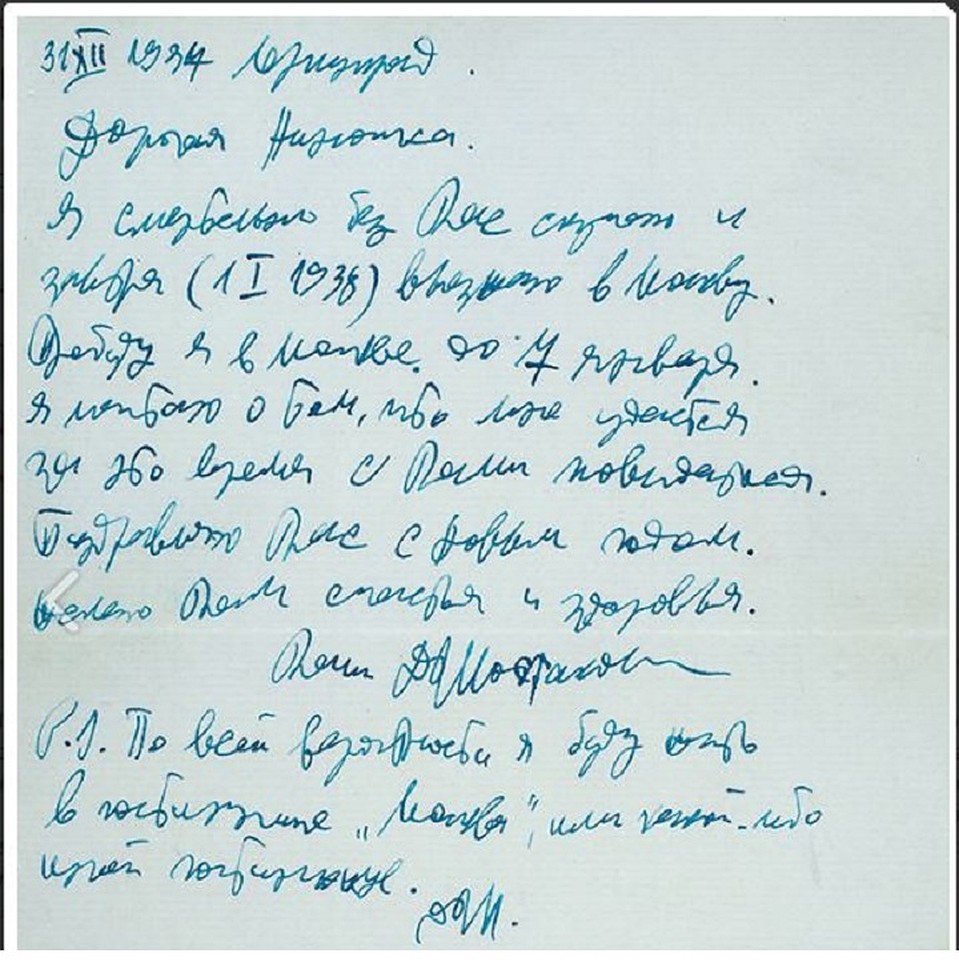 31 XII 1937 Ленинград.
Дорогая Ниночка.
Я смертельно без Вас скучаю и
завтра (1 I 1938) выезжаю в Москву.
Пробуду я в Москве до 7 января.
Я мечтаю о том, что мне удастся
за это время с Вами повидаться.
Поздравляю Вас с Новым годом.
Желаю Вам счастья и здоровья.
Ваш Д Шостакович
P.S. По всей вероятности я буду жить
в гостинице „Москва", или какой-либо
иной гостинице.
ДШ.